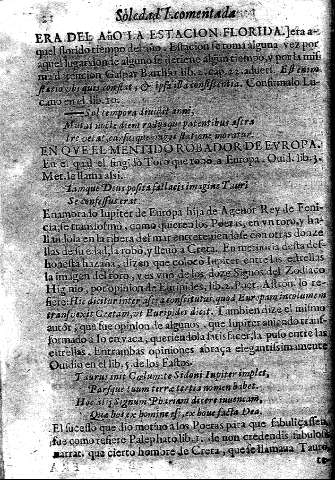 Soledad I. comentada
ERA DEL AÑO LA ESTACION FLORIDA. Iera a-
quel florido tiempo del año. Estacion se toma alguna vez por
aquel lugar donde alguno se detiene algun tiempo, y por la mis
ma detencion Gaspar Barthio lib. 2. cap. 22. advers. Est enim
statio ubi quis constat, & ipsa illa consistentia. Confirmalo Lu-
cano en el lib. 10.
Sol tempora dividit anni,
Mutat nocte diem radiisque patentibus astra
Ire vetat, cursusque vagos statione moratur.
EN QUE EL MENTIDO ROBADOR DE EUROPA.
En el qual el fingido Toro que robò a Europa. Ouid. lib. 3.
Met. le llama assi.
Iamque Deus posita fallacis imagine Tauri
Se confessus erat.
Enamorado Iupiter de Europa hija de Agenor Rey de Feni-
cia, se transformò, como quieren los Poetas, en vn toro, y ha-
llandola en la ribera del mar entreteniendose con otras donze
llas de su edad, la robò, y lleuò a Creta. En memoria desta de-
bosella hazaña, dizen que colocò Iupiter entre las estrellas
la imagen del toro, y es vno de los doze Signos del Zodiaco
Higinio, por opinion de Euripides, lib. 2. Poet. Astron. lo re-
fiere: Hic dicitur inter astra constitutus, quod Europam incolumem
transvexit Cretam, ut Euripides dicit. Tambien dize el mismo
autor, que fue opinion de algunos, que Iupiter auiendo trans-
formado a Io en vaca, queriendola satisfacer, la puso entre las
estrellas. Entrambas opiniones abraça elegantissimamente
Ouidio en el lib. 5. de los Fastos.
Taurus init Cœlum: te Sidoni Iupiter implet,
Parsque tuum terræ tertia nomen habet.
Hoc alij Signum Phariam dixere iuuencam,
Quæ bos ex homine est, ex boue facta Dea.
El sucesso que dio motiuo a los Poetas para que fabulicassen,
fue como refiere Palephato lib. 1. de non credendis fabulosis
narrat. que cierto hombre de Creta, que se llamaua Tauro,